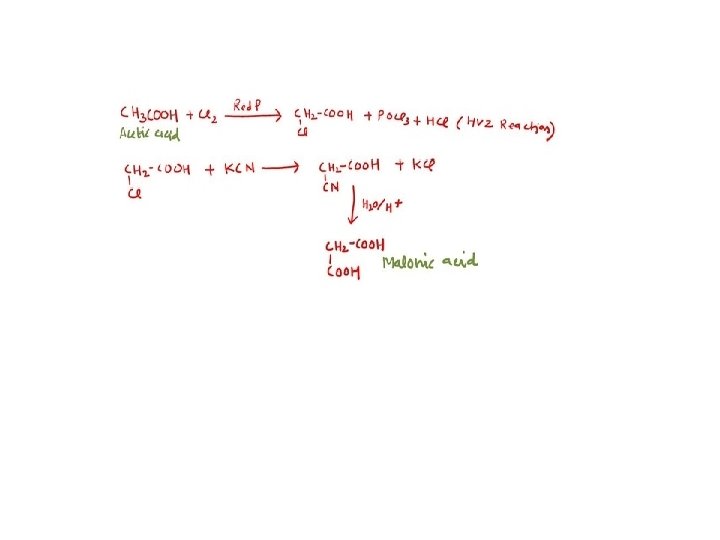 CH3COOH + Cl2 Red P → CH2-COOH + POCl3 + HCl (HVZ Reaction)
Acetic acid Cl
CH2-COOH + KCN → CH2-COOH + KCl
Cl CN
H2O/H+
CH2-COOH
COOH Malonic acid